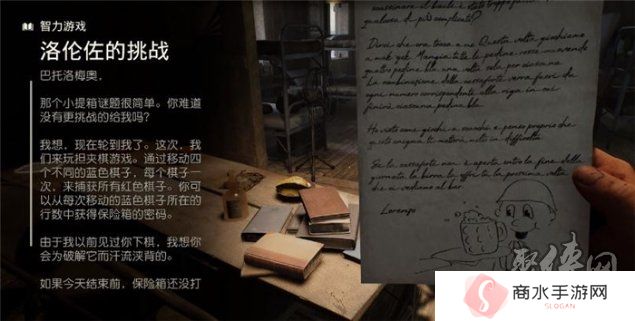 智力游戏
洛伦佐的挑战
巴托洛梅奥，
那个小提箱谜题很简单。你难道
没有更挑战的给我吗？
我想，现在轮到我了。这次，我
们来玩担夹棋游戏。通过移动四
个不同的蓝色棋子，每个棋子一
次，来捕获所有红色棋子。你可
以从每次移动的蓝色棋子所在的
行数中获得保险箱的密码。
由于我以前见过你下棋，我想你
会为破解它而汗流浃背的。
如果今天结束前，保险箱还没打
qualcosa di più complicato?
Direi che ora tocca a me. Questa volta giochiamo
a mak yek. Mangia tutte le pedine rosse muovendo
quattro pedine blu una volta sola per ciascuna.
La combinazione della cassaforte verrà fuori che
ogni numero corrispondente alla riga in cui
finirà ciascuna pedina blu.
Ho visto come giochi a scacchi e penso proprio che
questo enigma ti metterà molto in difficoltà.
Se la cassaforte non è aperta entro la fine della
giornata la birra la offri tu la prossima volta
che ci vediamo al bar.
Lorenzo
商水手游网